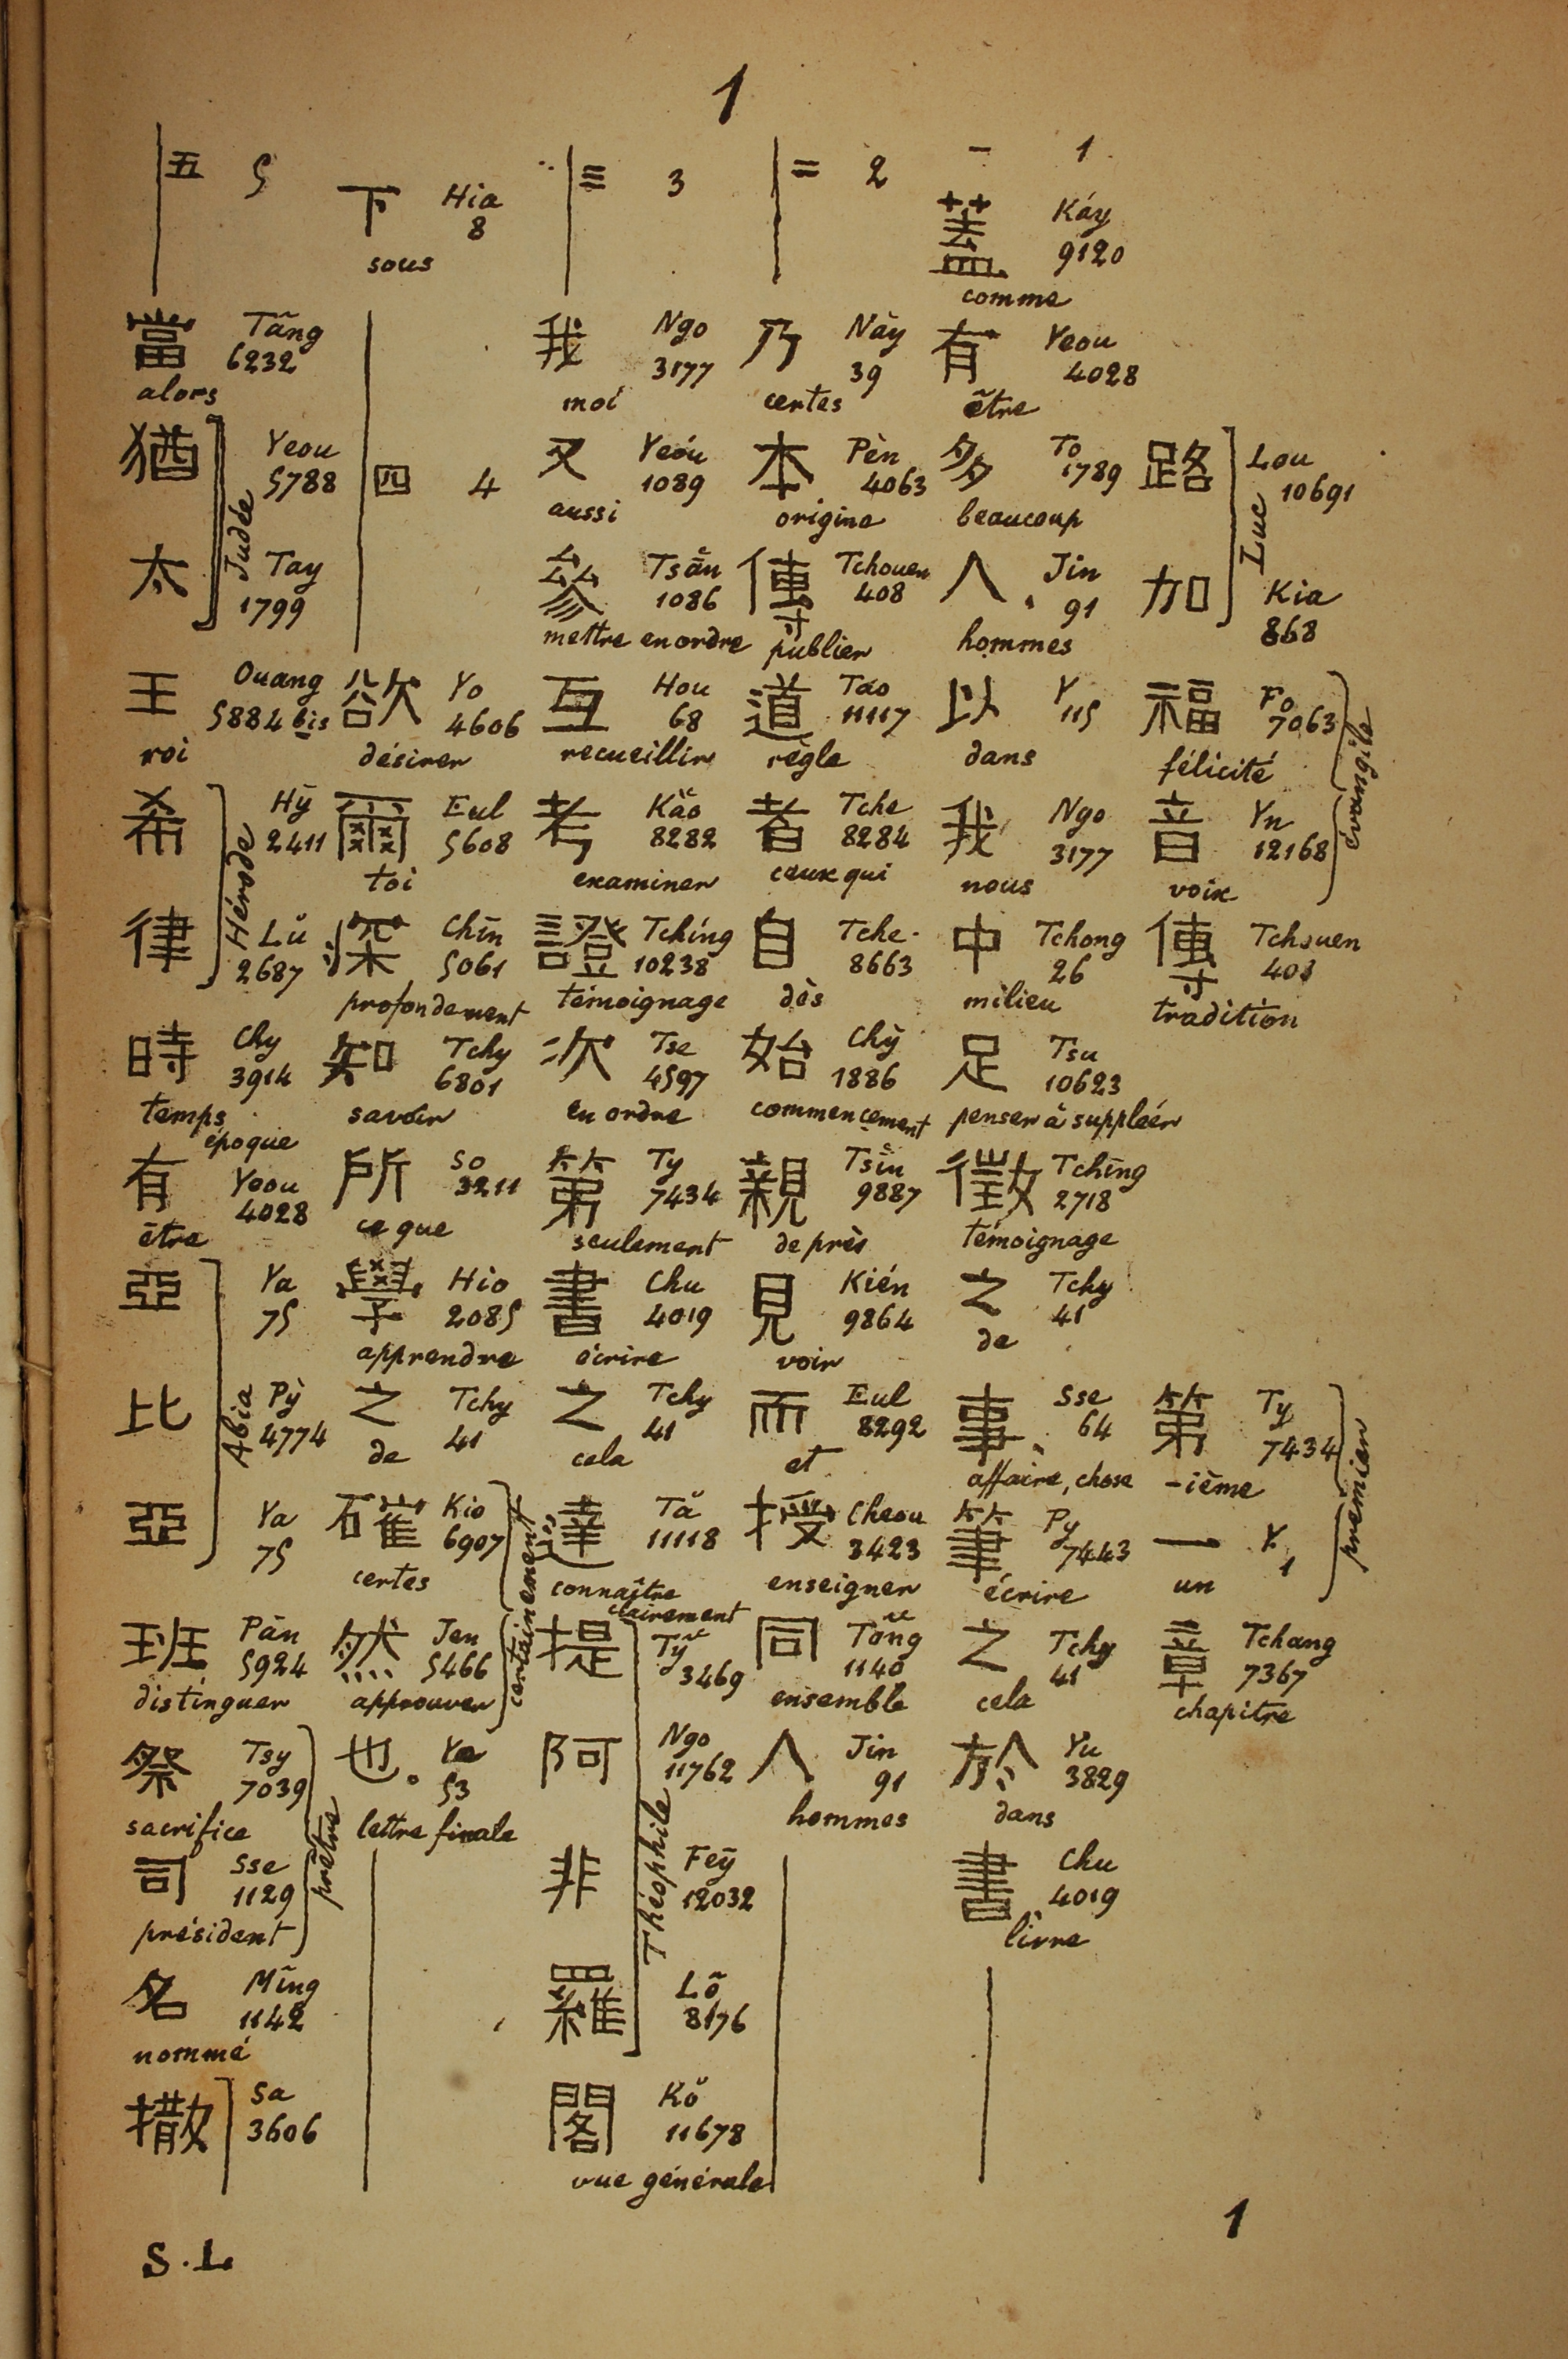 1
路 Lou
10691
加 Kia
868
Luc
福 Fo
7063
félicité
音 Yn
12168
voix
évangile
傳 Tchouen
408
tradition
第 Ty
7434
-ième
一 Y
1
un
premier
章 Tchang
7367
chapitre
一 1
蓋 Káy
9120
comme
有 Yeou
4028
être
多 To
1789
beaucoup
人 Jin
91
hommes
以 Y
115
dans
我 Ngo
3177
nous
中 Tchong
26
milieu
足 Tsu
10623
penser à suppléer
徵 Tchīng
2718
témoignage
之 Tchy
41
de
事 Sse
64
affaire, chose
筆 Py
7443
écrire
之 Tchy
41
cela
於 Yu
3829
dans
書 Chu
4019
livre
二 2
乃 Này
39
certes
本 Pèn
4063
origine
傳 Tchouen
408
publier
道 Tao
11117
règle
者 Tche
8284
ceux qui
自 Tche
8663
dès
始 Chỳ
1886
commencement
親 Tsīn
9887
de près
見 Kién
9864
voir
而 Eul
8292
et
授 Cheou
3423
enseigner
同 Tong
1140
ensemble
人 Jin
91
hommes
三 3
我 Ngo
3177
moi
又 Yeóu
1089
aussi
參 Tsān
1086
mettre en ordre
互 Hou
68
recueillir
考 Kǎo
8282
examiner
證 Tchíng
10238
témoignage
次 Tse
4597
en ordre
第 Ty
7434
seulement
書 Chu
4019
écrire
之 Tchy
41
cela
達 Tǎ
11118
connaître
clairement
提 Tỹ
3469
阿 Ngo
11762
非 Feȳ
12032
羅 Lõ
8176
Théophile
閣 Kǒ
11678
vue générale
四 4
欲 Yo
4606
désirer
爾 Eul
5608
toi
深 Chīn
5061
profondement
知 Tchy
6801
savoir
所 So
3211
ce que
學 Hio
2085
apprendre
之 Tchy
41
de
確 Kio
6907
certes
然 Jen
5466
approuver
certainement
也。 Ye
53
lettre finale
下 Hia
8
sous
五 5
當 Tāng
6232
alors
猶 Yeou
5788
太 Tay
1799
Judée
王 Ouang
5884 bis
roi
希 Hȳ
2411
律 Lǔ
2687
Hérode
時 Chy
3914
temps
époque
有 Yeou
4028
être
亞 Ya
75
比 Pỳ
4774
亞 Ya
75
Abia
班 Pān
5924
distinguer
祭 Tsy
7039
sacrifice
司 Sse
1129
président
prêtre
名 Mîng
1142
nommé
撒 Sa
3606
S.L
1